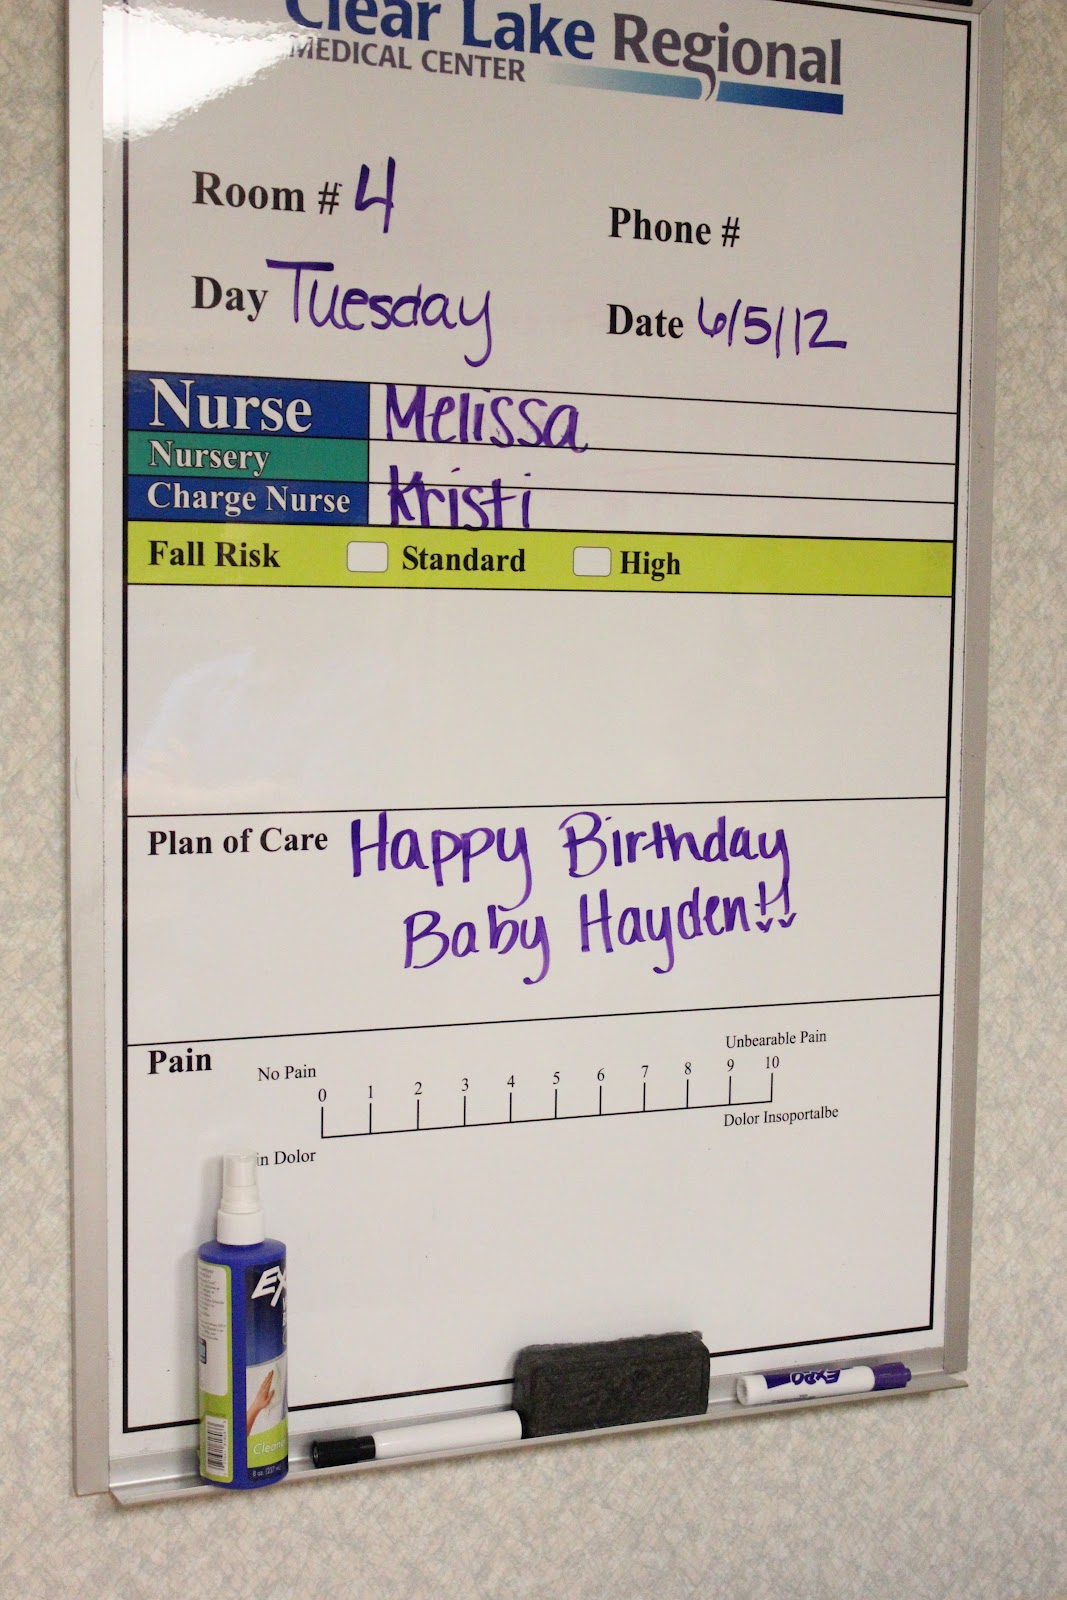 Clear Lake Regional
MEDICAL CENTER
Room # 4
Phone #
Day Tuesday
Date 6/5/12
Nurse Melissa
Nursery
Charge Nurse Kristi
Fall Risk Standard High
Plan of Care Happy Birthday
Baby Hayden!!
Pain
No Pain
Unbearable Pain
0 1 2 3 4 5 6 7 8 9 10
in Dolor
Dolor Insoportalbe
EX
Clean
8 oz. (237
EXPO